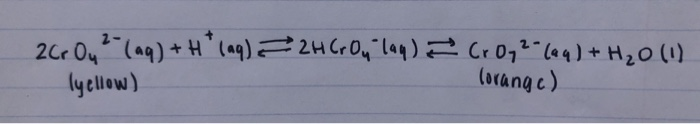 2CrO₄²⁻(aq) + H⁺(aq) ⇌ 2HCrO₄⁻(aq) ⇌ CrO₇²⁻(aq) + H₂O(l)
(yellow) (orange)